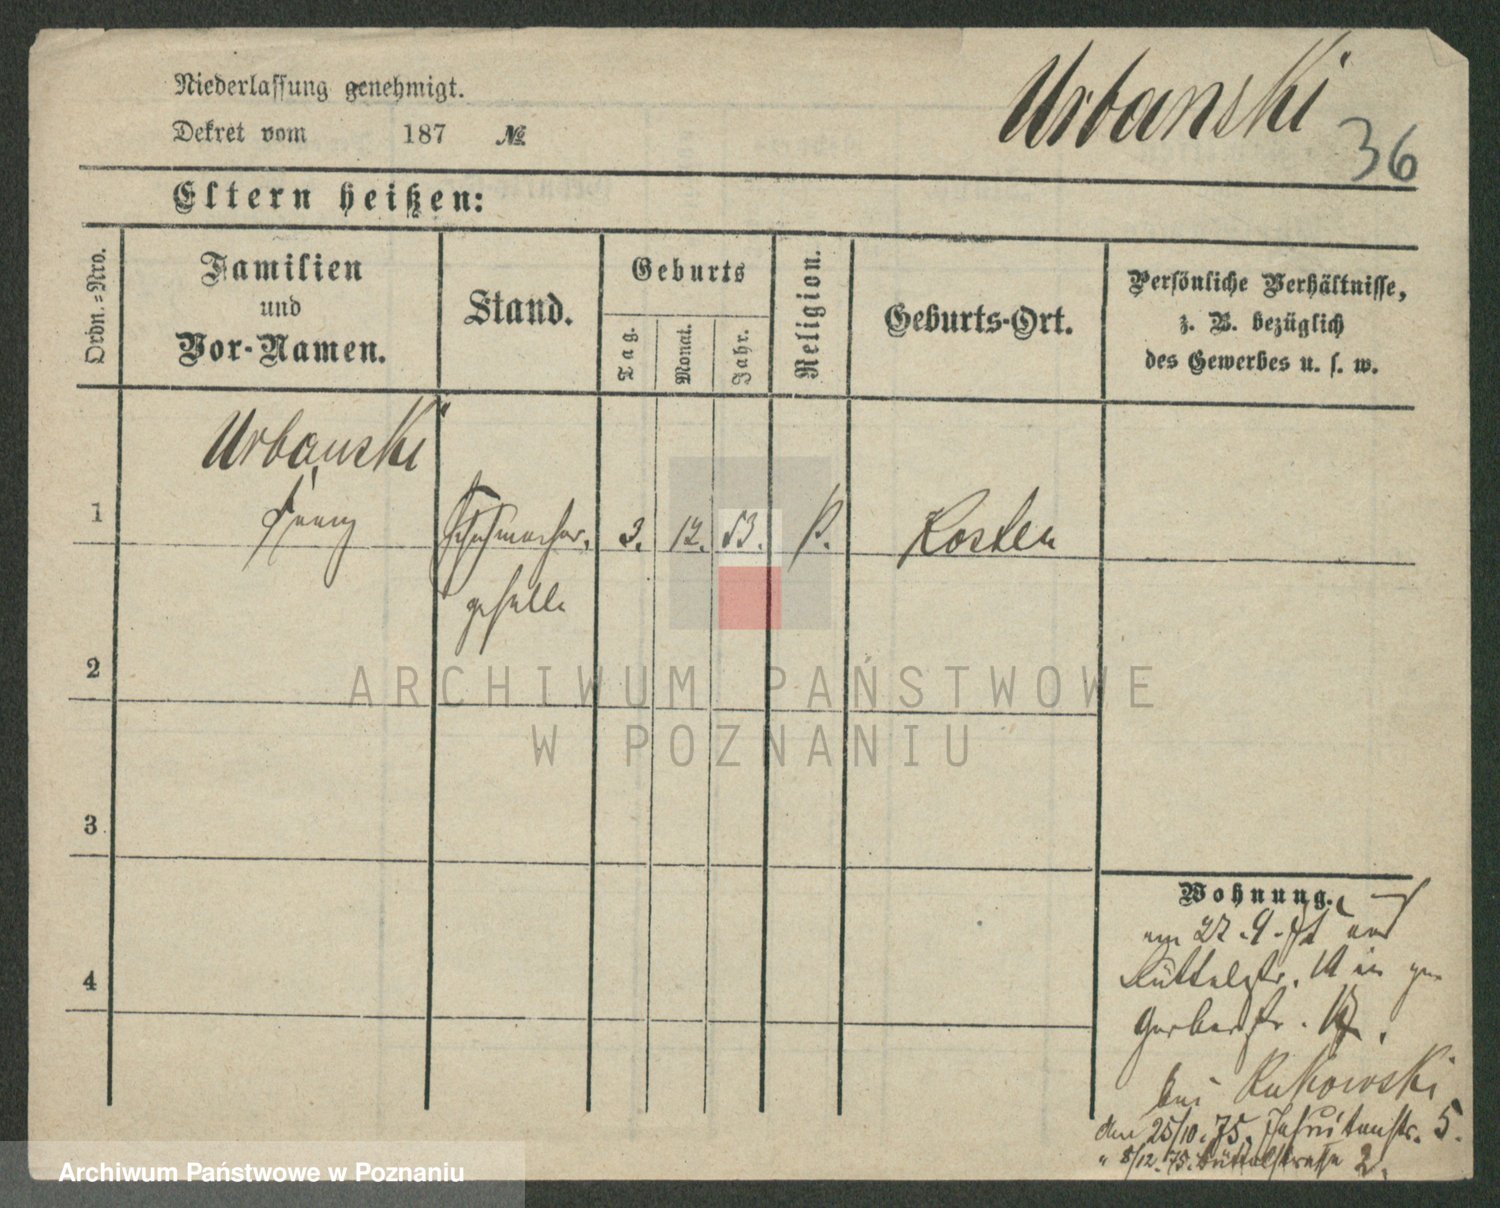 Niederlassung genehmigt.
Dekret vom 187 №
Urbanski
36
Eltern heißen:
Ordn.=Nro.
Familien
und
Vor-Namen.
Stand.
Geburts
Tag.
Monat.
Jahr.
Religion.
Geburts-Ort.
Persönliche Verhältnisse,
z. B. bezüglich
des Gewerbes u. s. w.
Urbanski
1 Franz Schuhmacher. 3. 12. 53. k. Kosten
geselle
2
ARCHIWUM PAŃSTWOWE
W POZNANIU
3
Wohnung.
am 27. 9. von
Büttelstr. in
4
Gerberstr.
bei Rukowski
den 25/10. 75. Jesuitenstr. 5.
" 8/12. 75. Büttelstraße 2.
Archiwum Państwowe w Poznaniu